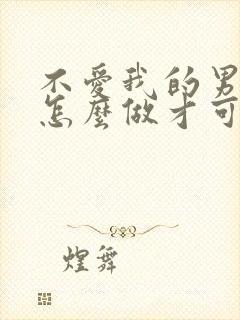 不愛我的男
怎麼做才可
煌舞